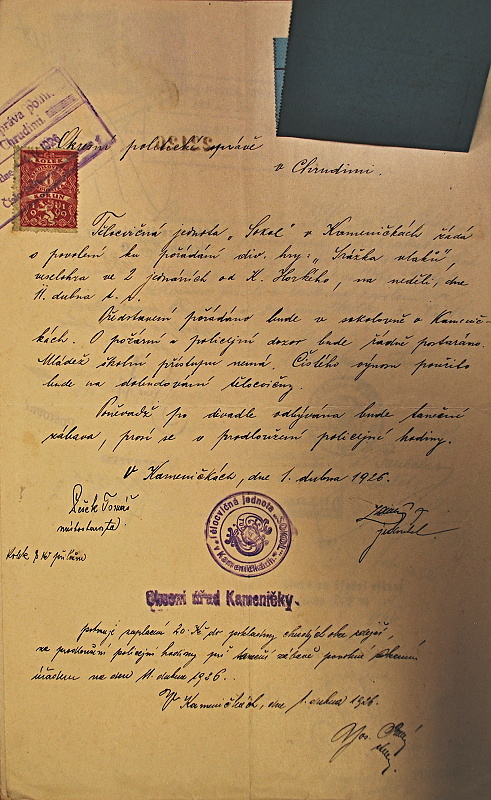 práva polit.
Chrudimi
1926
KOLEK
Okresní politické správě
v Chrudimi.
Tělocvičná jednota „Sokol" v Kameničkách žádá
o povolení ku pořádání div. hry: „Srážka vlaků",
veselohra ve 2 jednáních od K. Horkého, na neděli, dne
11. dubna t. r.
Představení pořádáno bude v sokolovně v Kamenič-
kách. O požární a policejní dozor bude řádně postaráno.
Mládež školní přístupu nemá. Čistého výnosu použito
bude na dobudování tělocvičny.
Poněvadž po divadle odbývána bude taneční
zábava, prosí se o prodloužení policejní hodiny.
V Kameničkách, dne 1. dubna 1926.
Tomáš
místostarosta
jednatel
Tělocvičná jednota „Sokol"
v Kameničkách
Kolek 8 Kč
Obecní úřad Kameničky.
potvrzuje zaplacení 20 Kč do pokladny chudých obce zdejší,
za prodloužení policejní hodiny při taneční zábavě povolené
úřadem na den 11. dubna 1926.
V Kameničkách, dne 1. dubna 1926.
Jos.